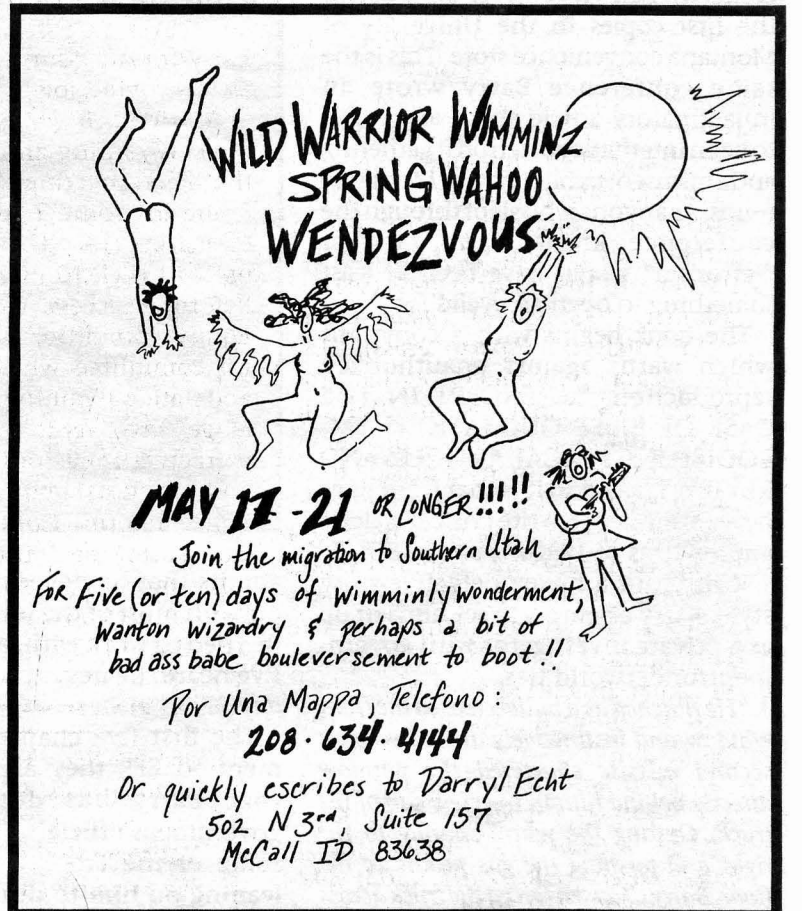 WILD WARRIOR WIMMINZ
SPRING WAHOO
WENDEZVOUS
MAY 17 - 21 OR LONGER!!!!!
Join the migration to Southern Utah
FOR Five (or ten) days of wimminly wonderment,
wanton wizardry & perhaps a bit of
bad ass babe bouleversement to boot!!
Por Una Mappa, Telefono:
208·634·4144
Or quickly escribes to Darryl Echt
502 N 3rd, Suite 157
McCall ID 83638